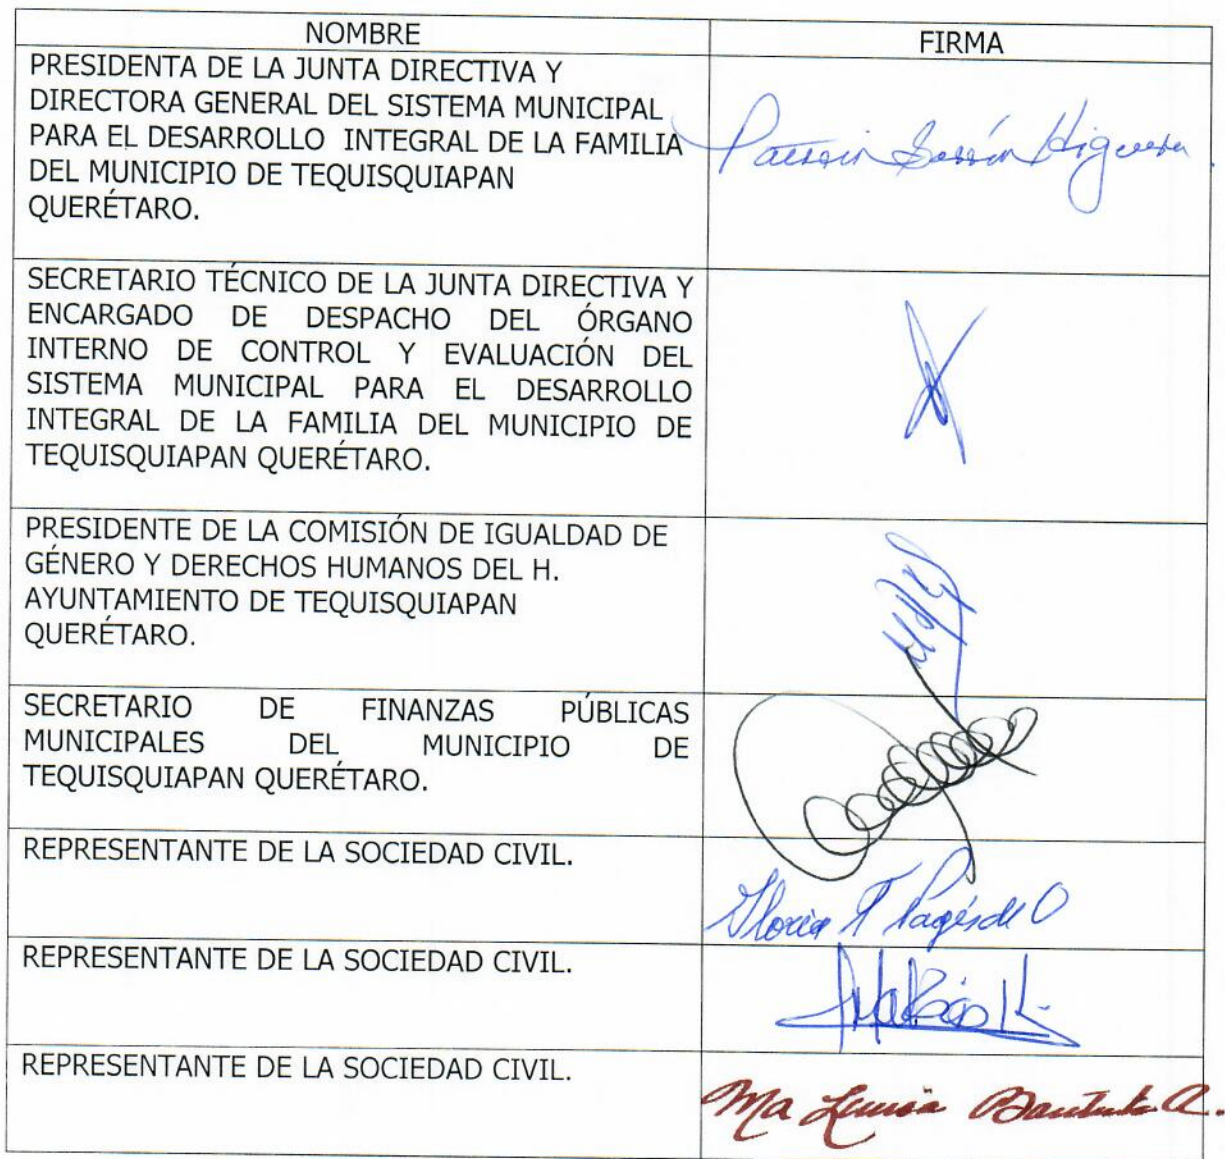 NOMBRE
FIRMA
PRESIDENTA DE LA JUNTA DIRECTIVA Y
DIRECTORA GENERAL DEL SISTEMA MUNICIPAL
PARA EL DESARROLLO INTEGRAL DE LA FAMILIA
DEL MUNICIPIO DE TEQUISQUIAPAN
QUERÉTARO.
Higuera
SECRETARIO TÉCNICO DE LA JUNTA DIRECTIVA Y
ENCARGADO DE DESPACHO DEL ÓRGANO
INTERNO DE CONTROL Y EVALUACIÓN DEL
SISTEMA MUNICIPAL PARA EL DESARROLLO
INTEGRAL DE LA FAMILIA DEL MUNICIPIO DE
TEQUISQUIAPAN QUERÉTARO.
PRESIDENTE DE LA COMISIÓN DE IGUALDAD DE
GÉNERO Y DERECHOS HUMANOS DEL H.
AYUNTAMIENTO DE TEQUISQUIAPAN
QUERÉTARO.
SECRETARIO DE FINANZAS PÚBLICAS
MUNICIPALES DEL MUNICIPIO DE
TEQUISQUIAPAN QUERÉTARO.
REPRESENTANTE DE LA SOCIEDAD CIVIL.
Gloria T Pagés de O
REPRESENTANTE DE LA SOCIEDAD CIVIL.
REPRESENTANTE DE LA SOCIEDAD CIVIL.
Ma Luisa Bautista A.